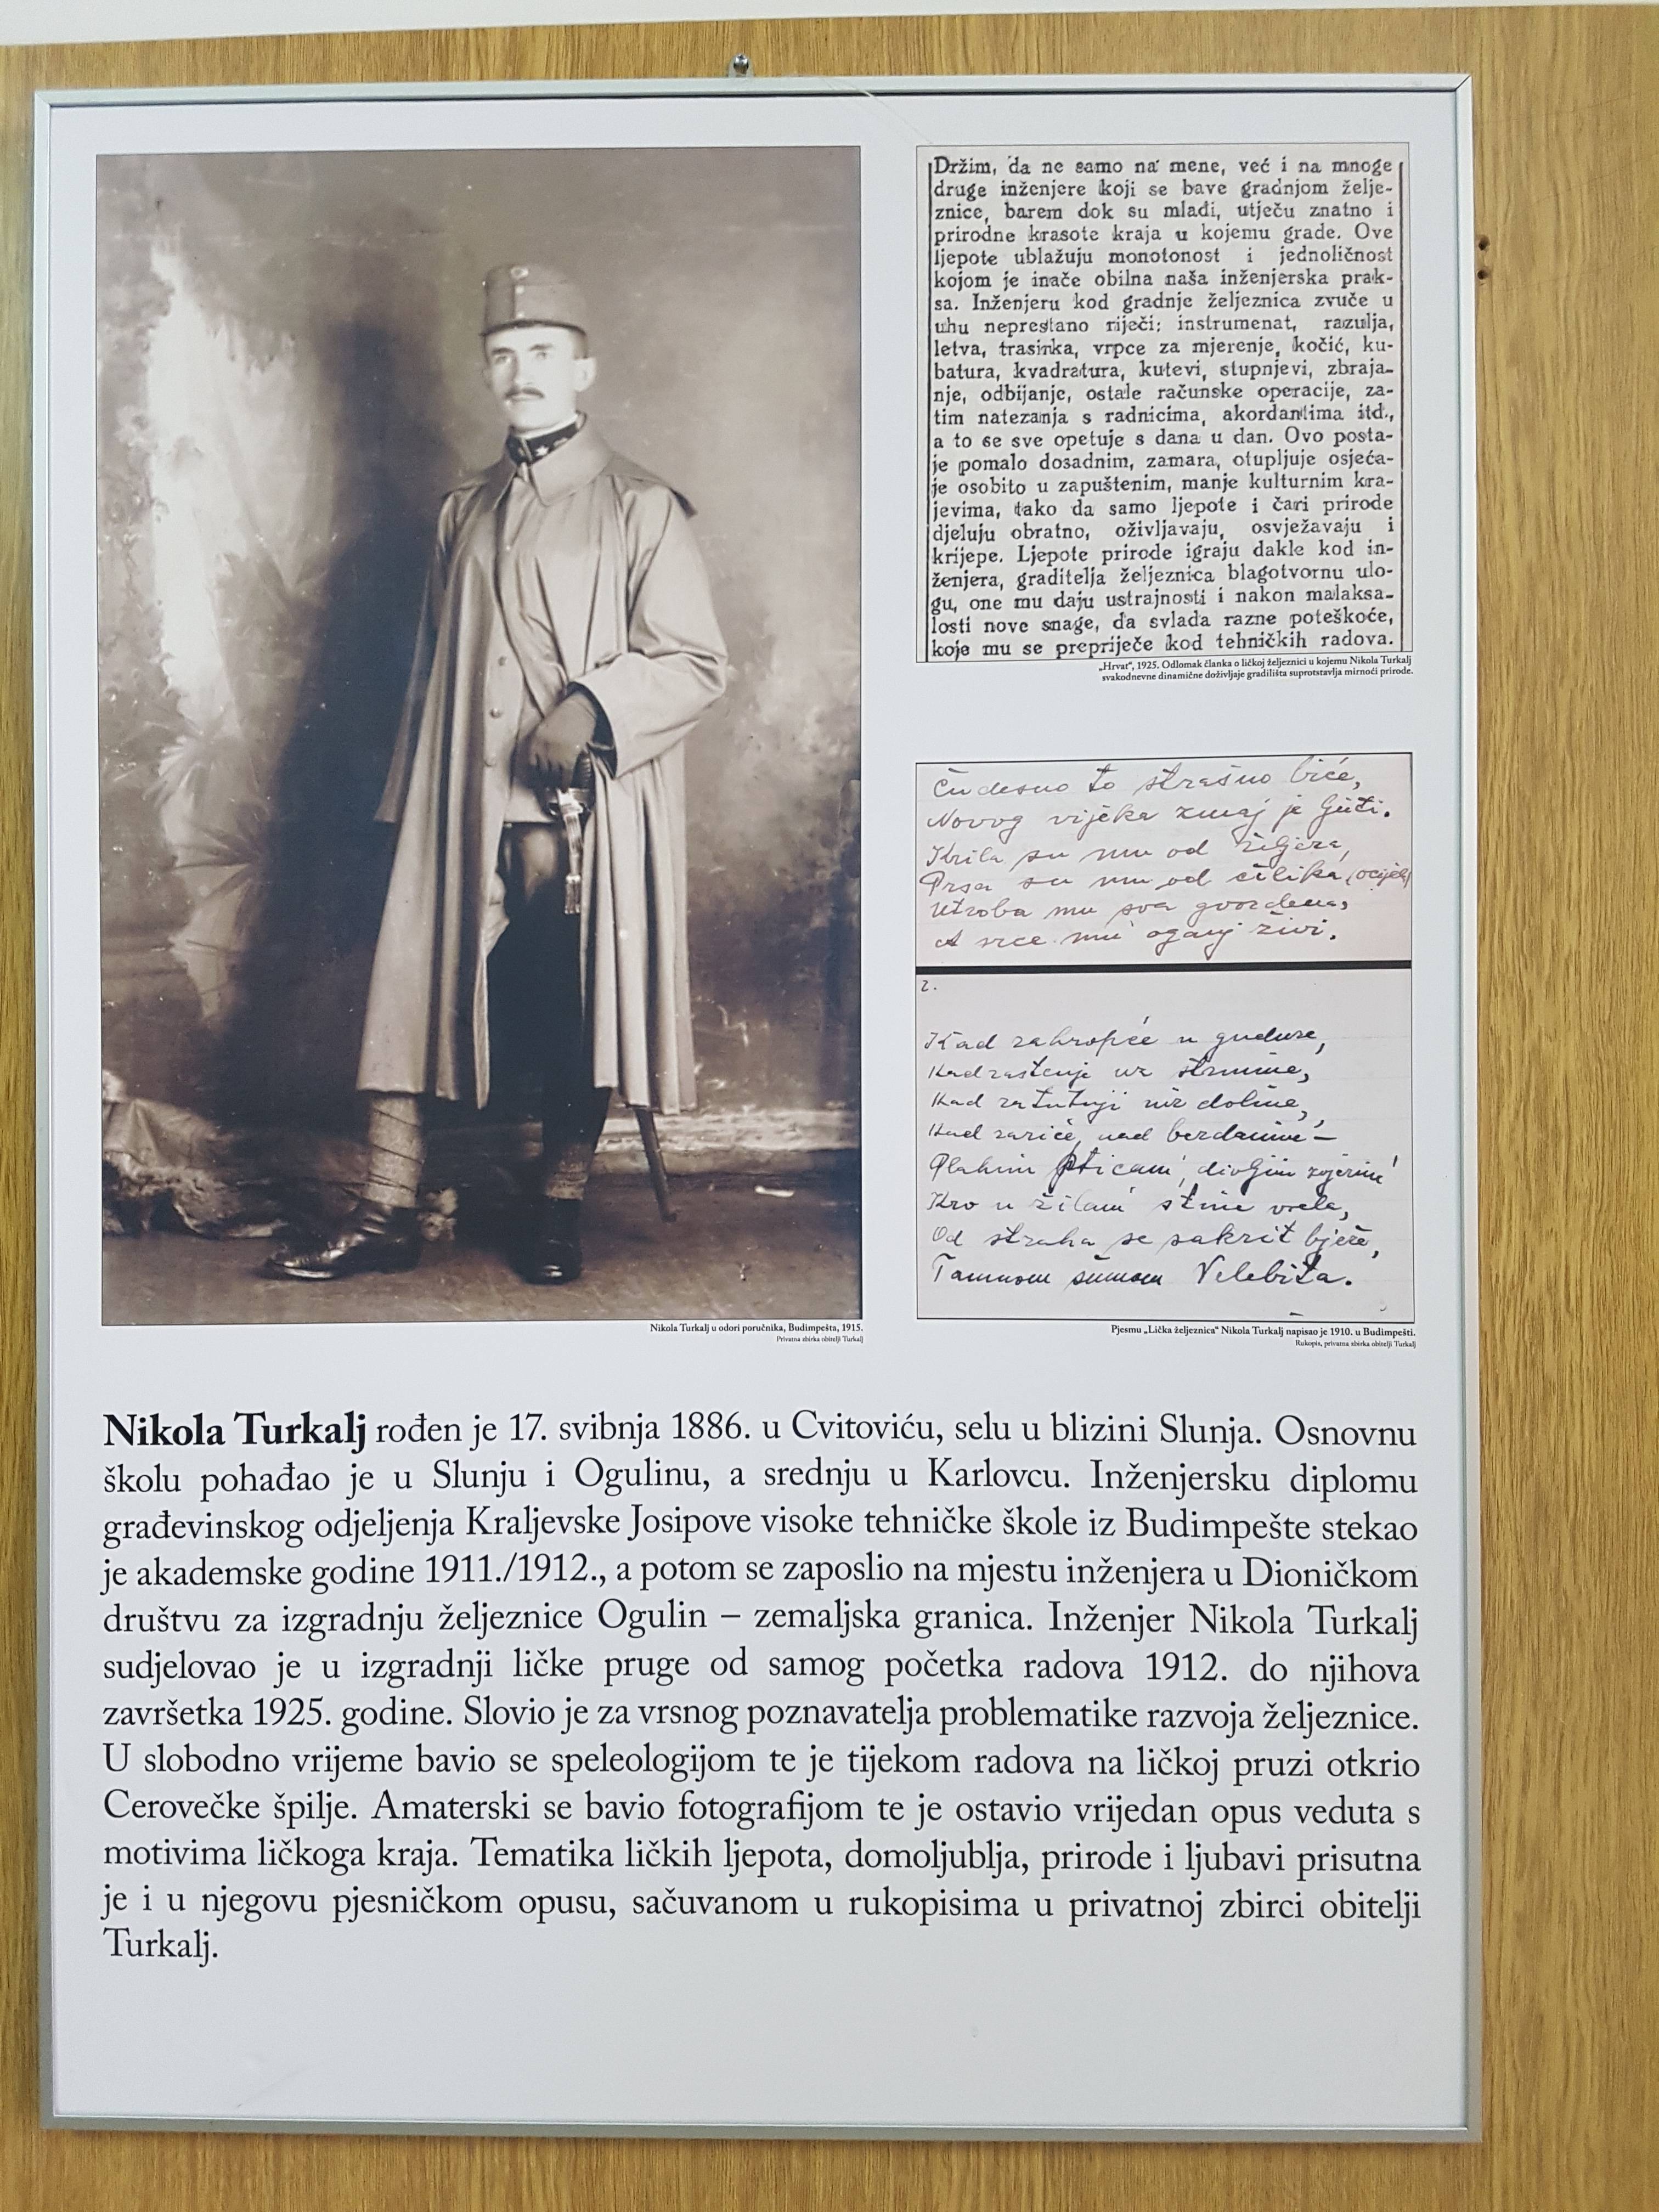 Držim, da ne samo na mene, već i na mnoge
druge inženjere koji se bave gradnjom želje-
znice, barem dok su mladi, utječu znatno i
prirodne krasote kraja u kojemu grade. Ove
ljepote ublažuju monotonost i jednoličnost
kojom je inače obilna naša inženjerska prak-
sa. Inženjeru kod gradnje željeznica zvuče u
uhu neprestano riječi; instrumenat, razulja,
letva, trasirka, vrpce za mjerenje, kočić, ku-
batura, kvadratura, kutevi, stupnjevi, zbraja-
nje, odbijanje, ostale računske operacije, za-
tim natezanja s radnicima, akordantima itd.,
a to se sve opetuje s dana u dan. Ovo posta-
je pomalo dosadnim, zamara, otupljuje osjeća-
je osobito u zapuštenim, manje kulturnim kra-
jevima, tako da samo ljepote i čari prirode
djeluju obratno, oživljavaju, osvježavaju i
krijepe. Ljepote prirode igraju dakle kod in-
ženjera, graditelja željeznica blagotvornu ulo-
gu, one mu daju ustrajnosti i nakon malaksa-
losti nove snage, da svlada razne poteškoće,
koje mu se prepriječe kod tehničkih radova.
„Hrvat“, 1925. Odlomak članka o ličkoj željeznici u kojemu Nikola Turkalj
svakodnevne dinamične doživljaje gradilišta suprotstavlja mirnoći prirode.
Čudesno to strašno biće,
Novog vijeka zmaj je ljuti.
Krila su mu od željeza,
Prsa su mu od čilika (ocijela)
Utroba mu sva gvozdena,
A srce mu oganj živi.
2.
Kad zahropće u gudure,
Kad zastenje uz strmine,
Kad zatutnji niz doline,
Kad zariče nad bezdanime –
Plahim pticam', divljim zvjerim'
Krv u žilam' stine vrela,
Od straha se sakrit bježe,
Tamnom šumom Velebita.
Nikola Turkalj u odori poručnika, Budimpešta, 1915.
Privatna zbirka obitelji Turkalj
Pjesmu „Lička željeznica“ Nikola Turkalj napisao je 1910. u Budimpešti.
Rukopis, privatna zbirka obitelji Turkalj
Nikola Turkalj rođen je 17. svibnja 1886. u Cvitoviću, selu u blizini Slunja. Osnovnu
školu pohađao je u Slunju i Ogulinu, a srednju u Karlovcu. Inženjersku diplomu
građevinskog odjeljenja Kraljevske Josipove visoke tehničke škole iz Budimpešte stekao
je akademske godine 1911./1912., a potom se zaposlio na mjestu inženjera u Dioničkom
društvu za izgradnju željeznice Ogulin – zemaljska granica. Inženjer Nikola Turkalj
sudjelovao je u izgradnji ličke pruge od samog početka radova 1912. do njihova
završetka 1925. godine. Slovio je za vrsnog poznavatelja problematike razvoja željeznice.
U slobodno vrijeme bavio se speleologijom te je tijekom radova na ličkoj pruzi otkrio
Cerovečke špilje. Amaterski se bavio fotografijom te je ostavio vrijedan opus veduta s
motivima ličkoga kraja. Tematika ličkih ljepota, domoljublja, prirode i ljubavi prisutna
je i u njegovu pjesničkom opusu, sačuvanom u rukopisima u privatnoj zbirci obitelji
Turkalj.